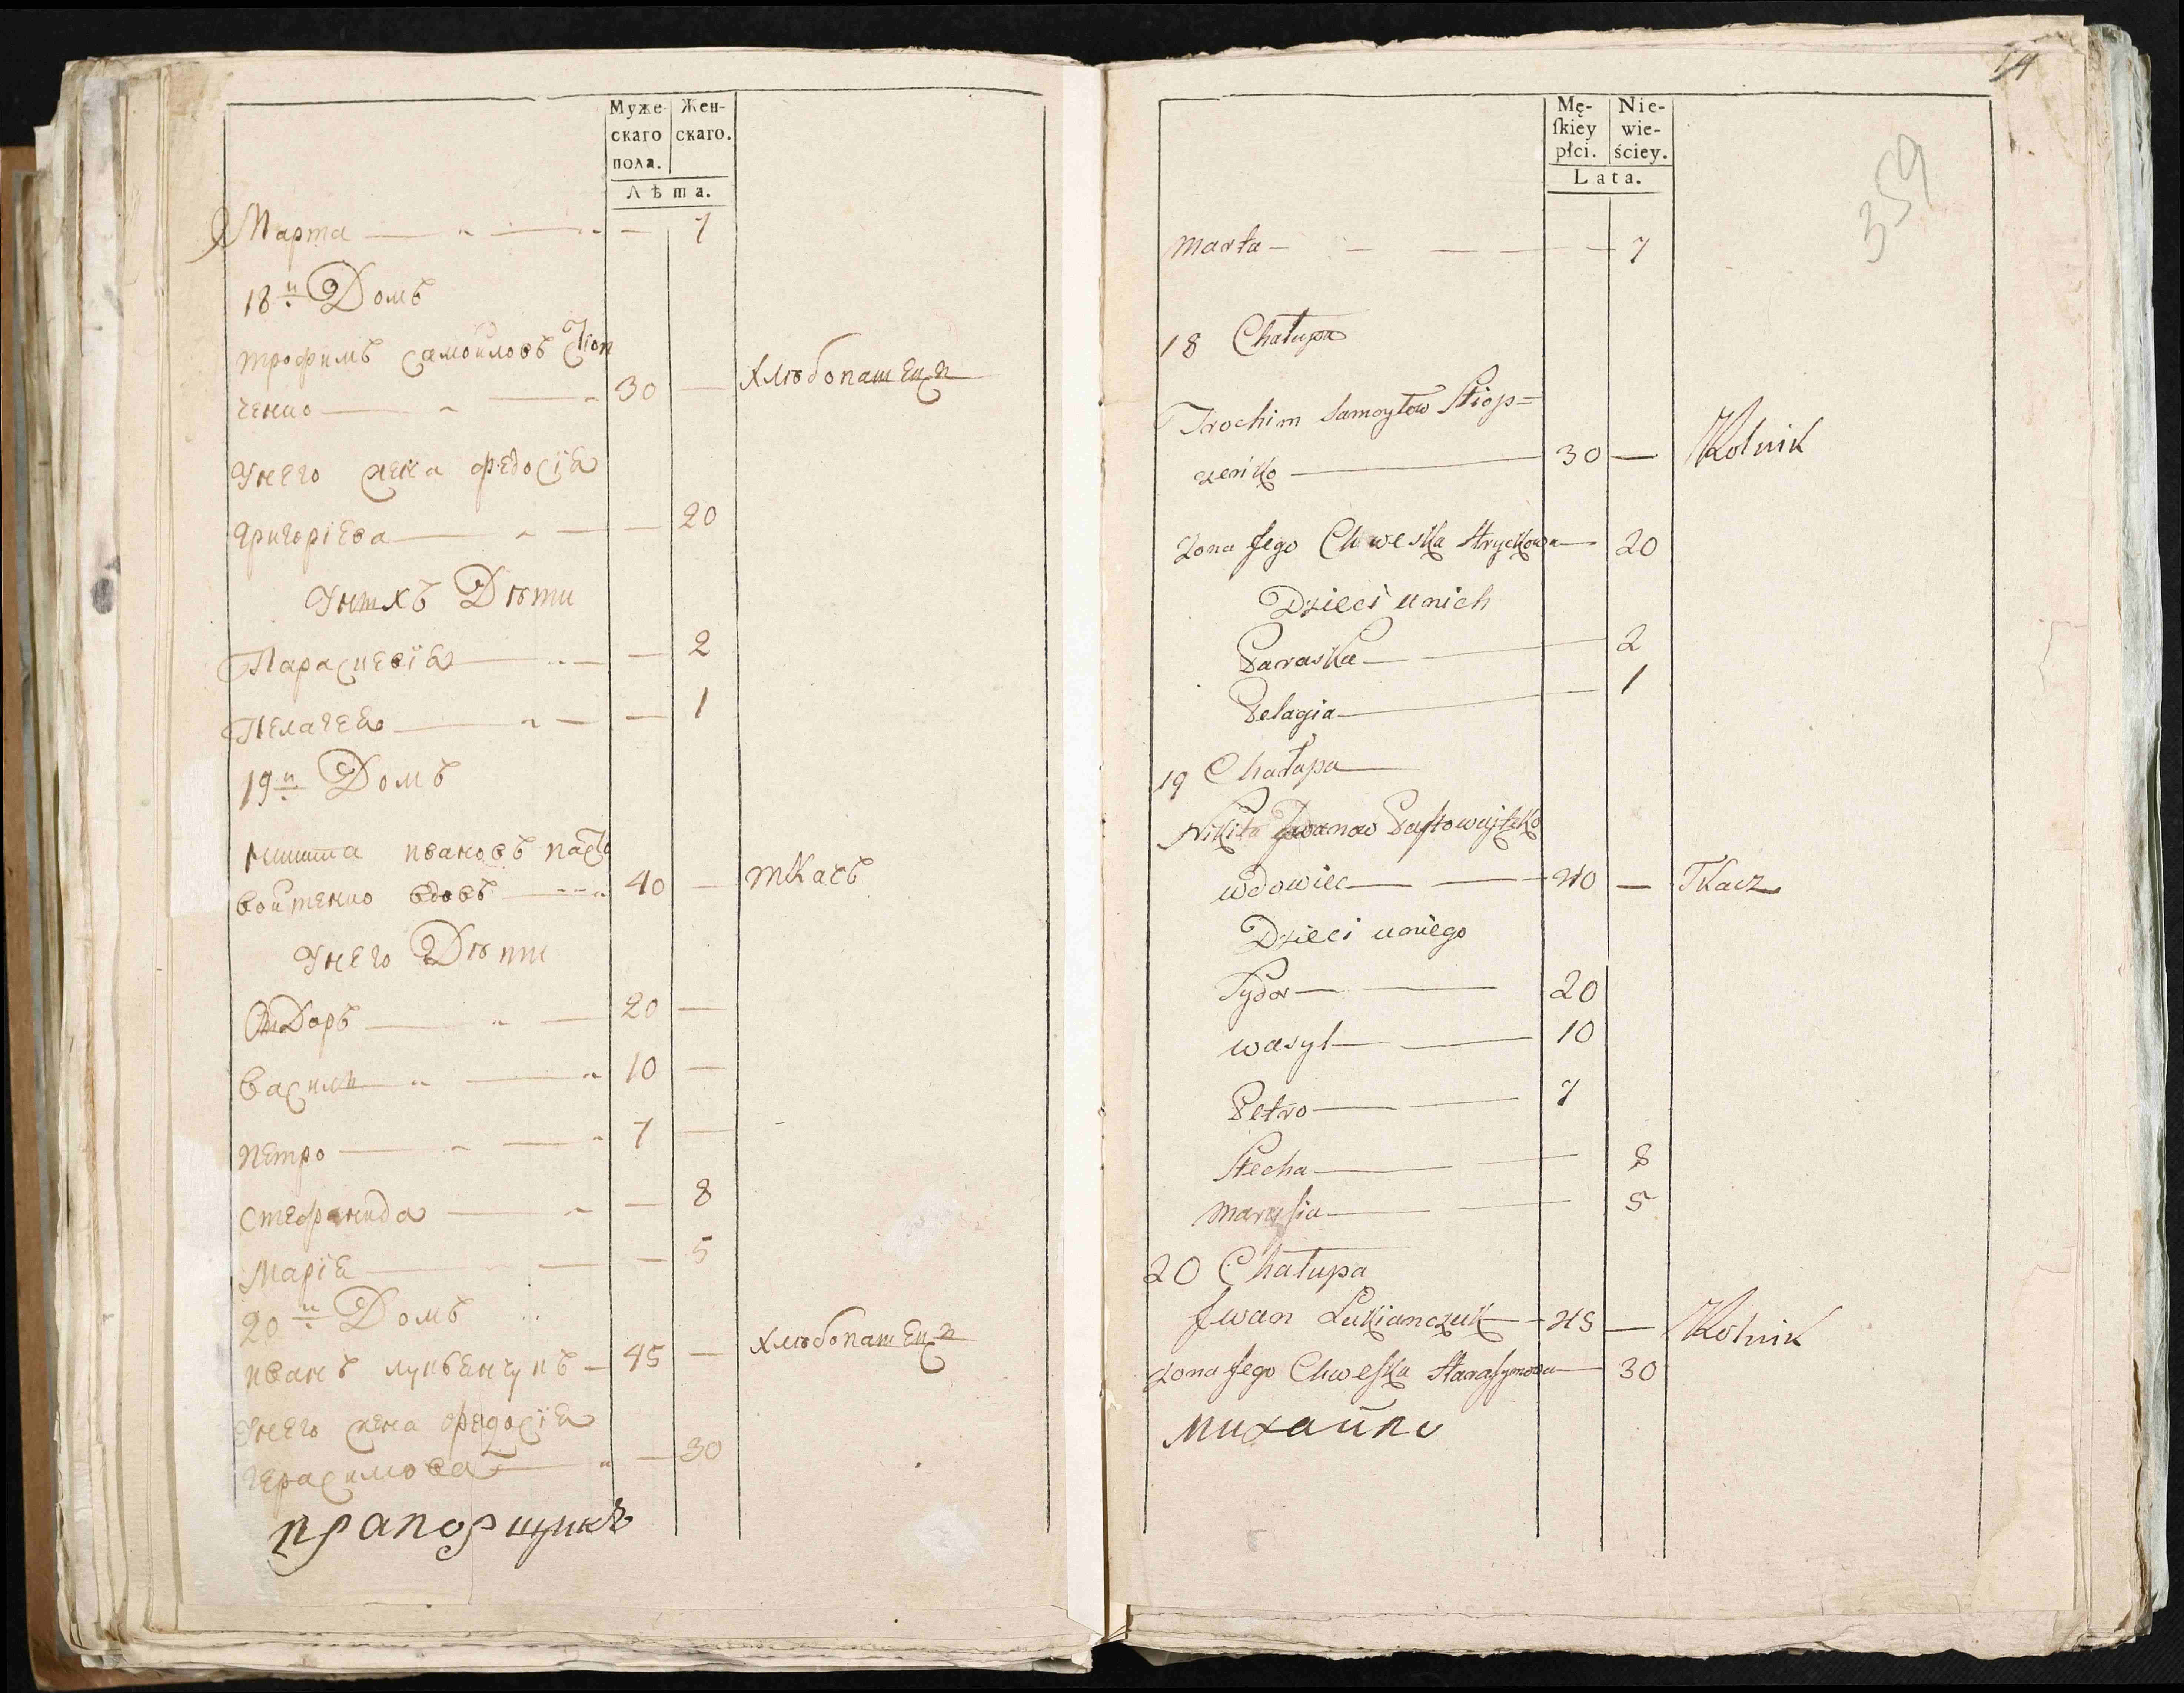 Муже- Жен-
скаго скаго.
пола.
Лѣта.
Марта — — — 7
18й Домъ
трофимъ самойловъ Стюп
ченко — — 30 — хлѣбопашецъ
Унего жена федосїя
григорїева — — 20
Унихъ Дѣти
Параскевїя — — 2
Пелагея — — 1
19й Домъ
никита ивановъ пасто
войтенко вдовъ — 40 — ткачъ
Унего Дѣти
Сидоръ — 20 —
василь — 10 —
петро — 7 —
стефанида — — 8
Марїя — — 5
20й Домъ
иванъ лукьянчукъ — 45 — хлѣбопашецъ
Унего жена федосїя
герасимова — — 30
прапорщикъ
14
359
Mę- Nie-
ſkiey wie-
płci. ściey.
Lata.
Marta — — — 7
18 Chałupa
Trochim Samoyłow Stiop=
czenko — 30 — Rolnik
Żona Jego Chweska Hryckowa — 20
Dzieci unich
Paraska — 2
Pelagia — 1
19 Chałupa
Nikita Iwanow Pastowajtęko
wdowiec — 40 — Tkacz
Dzieci uniego
Sydor — 20
wasyl — 10
Petro — 7
Stecha — 8
Marusia — 5
20 Chałupa
Jwan Lukianczuk — 45 — Rolnik
Zona Jego Chweska Harasymowa — 30
михайло